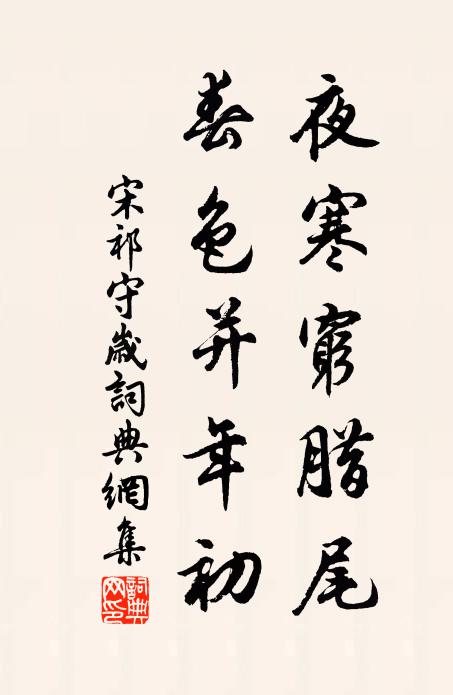 夜寒窮腊尾
春色并年初
宋祁守歲詞典網集
詞典網印